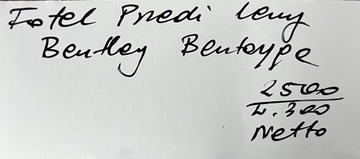 Fotel Przedi Lewy
Bentley Bentaype
2500
2.300
Netto